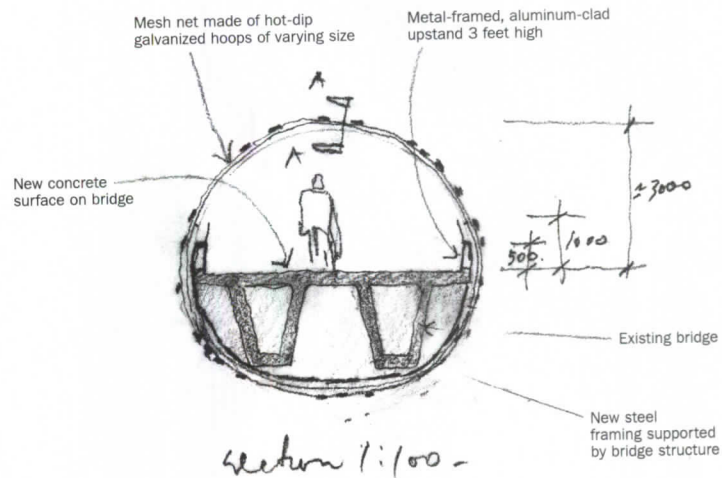 Mesh net made of hot-dip
galvanized hoops of varying size
Metal-framed, aluminum-clad
upstand 3 feet high
A
A
New concrete
surface on bridge
≈3000
1000
500.
Existing bridge
New steel
framing supported
by bridge structure
section 1:100-